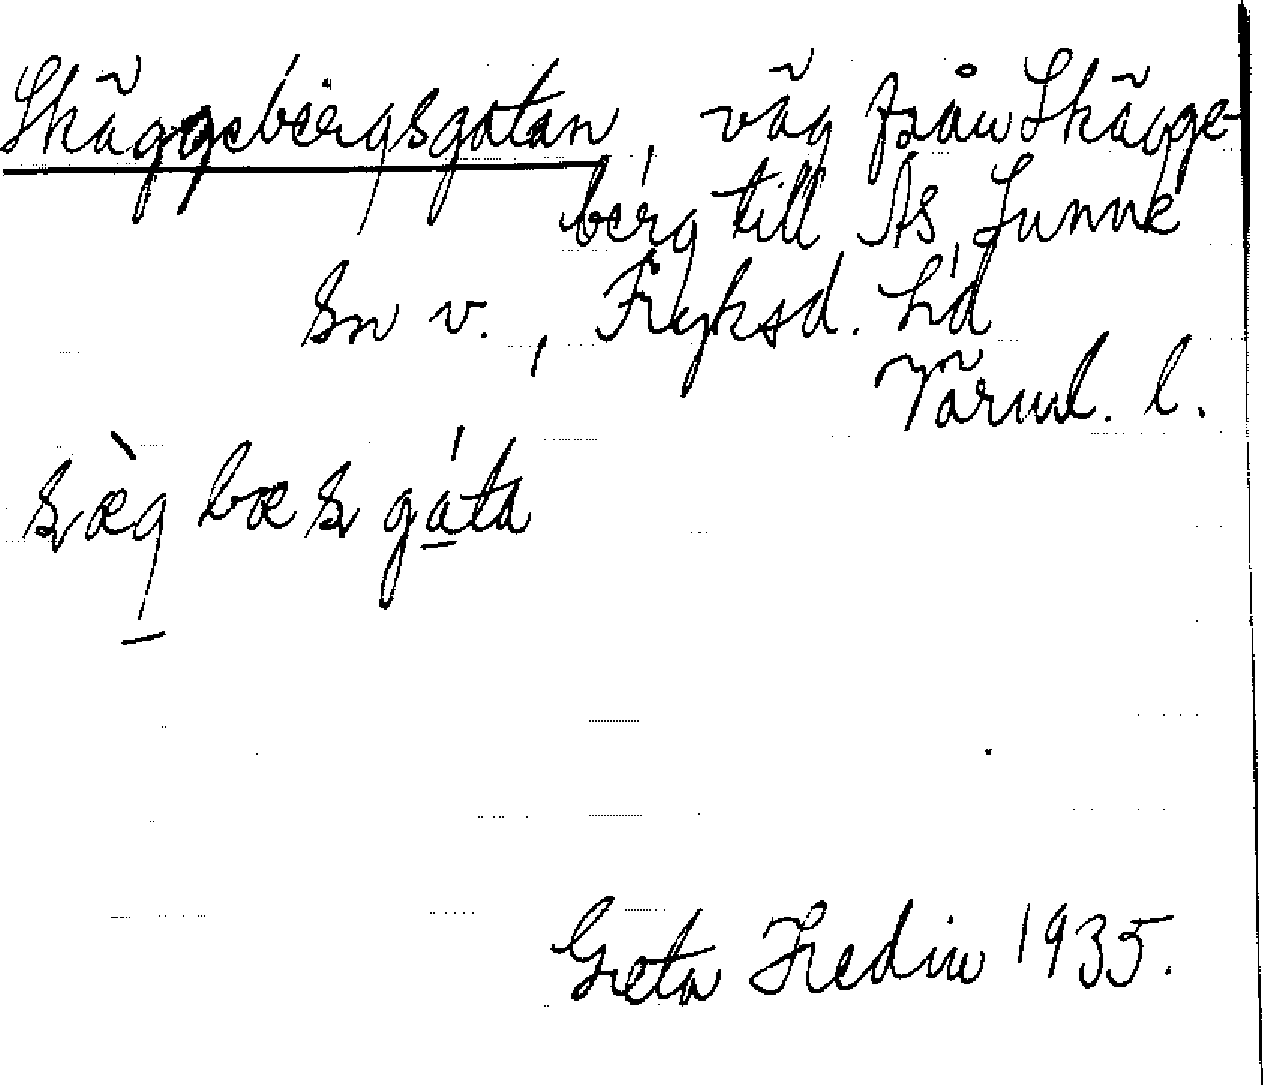 Skäggebergsgatan, väg från Skägge-
berg till Ås, Sunne
sn v., Fryksd. hd
Värml. l.
bæs gáta
Greta Hedin 1935.